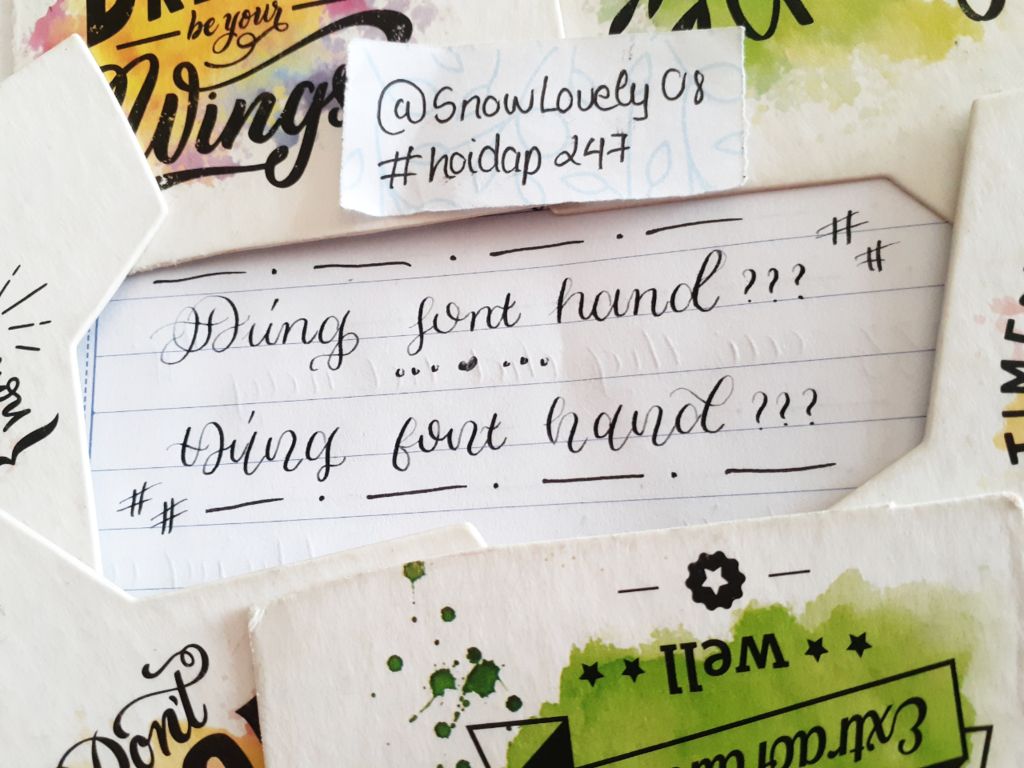 be your
Wings
@SnowLovely08
#hoidap 247
Đúng font hand ???
Đúng font hand ???
Don't
well